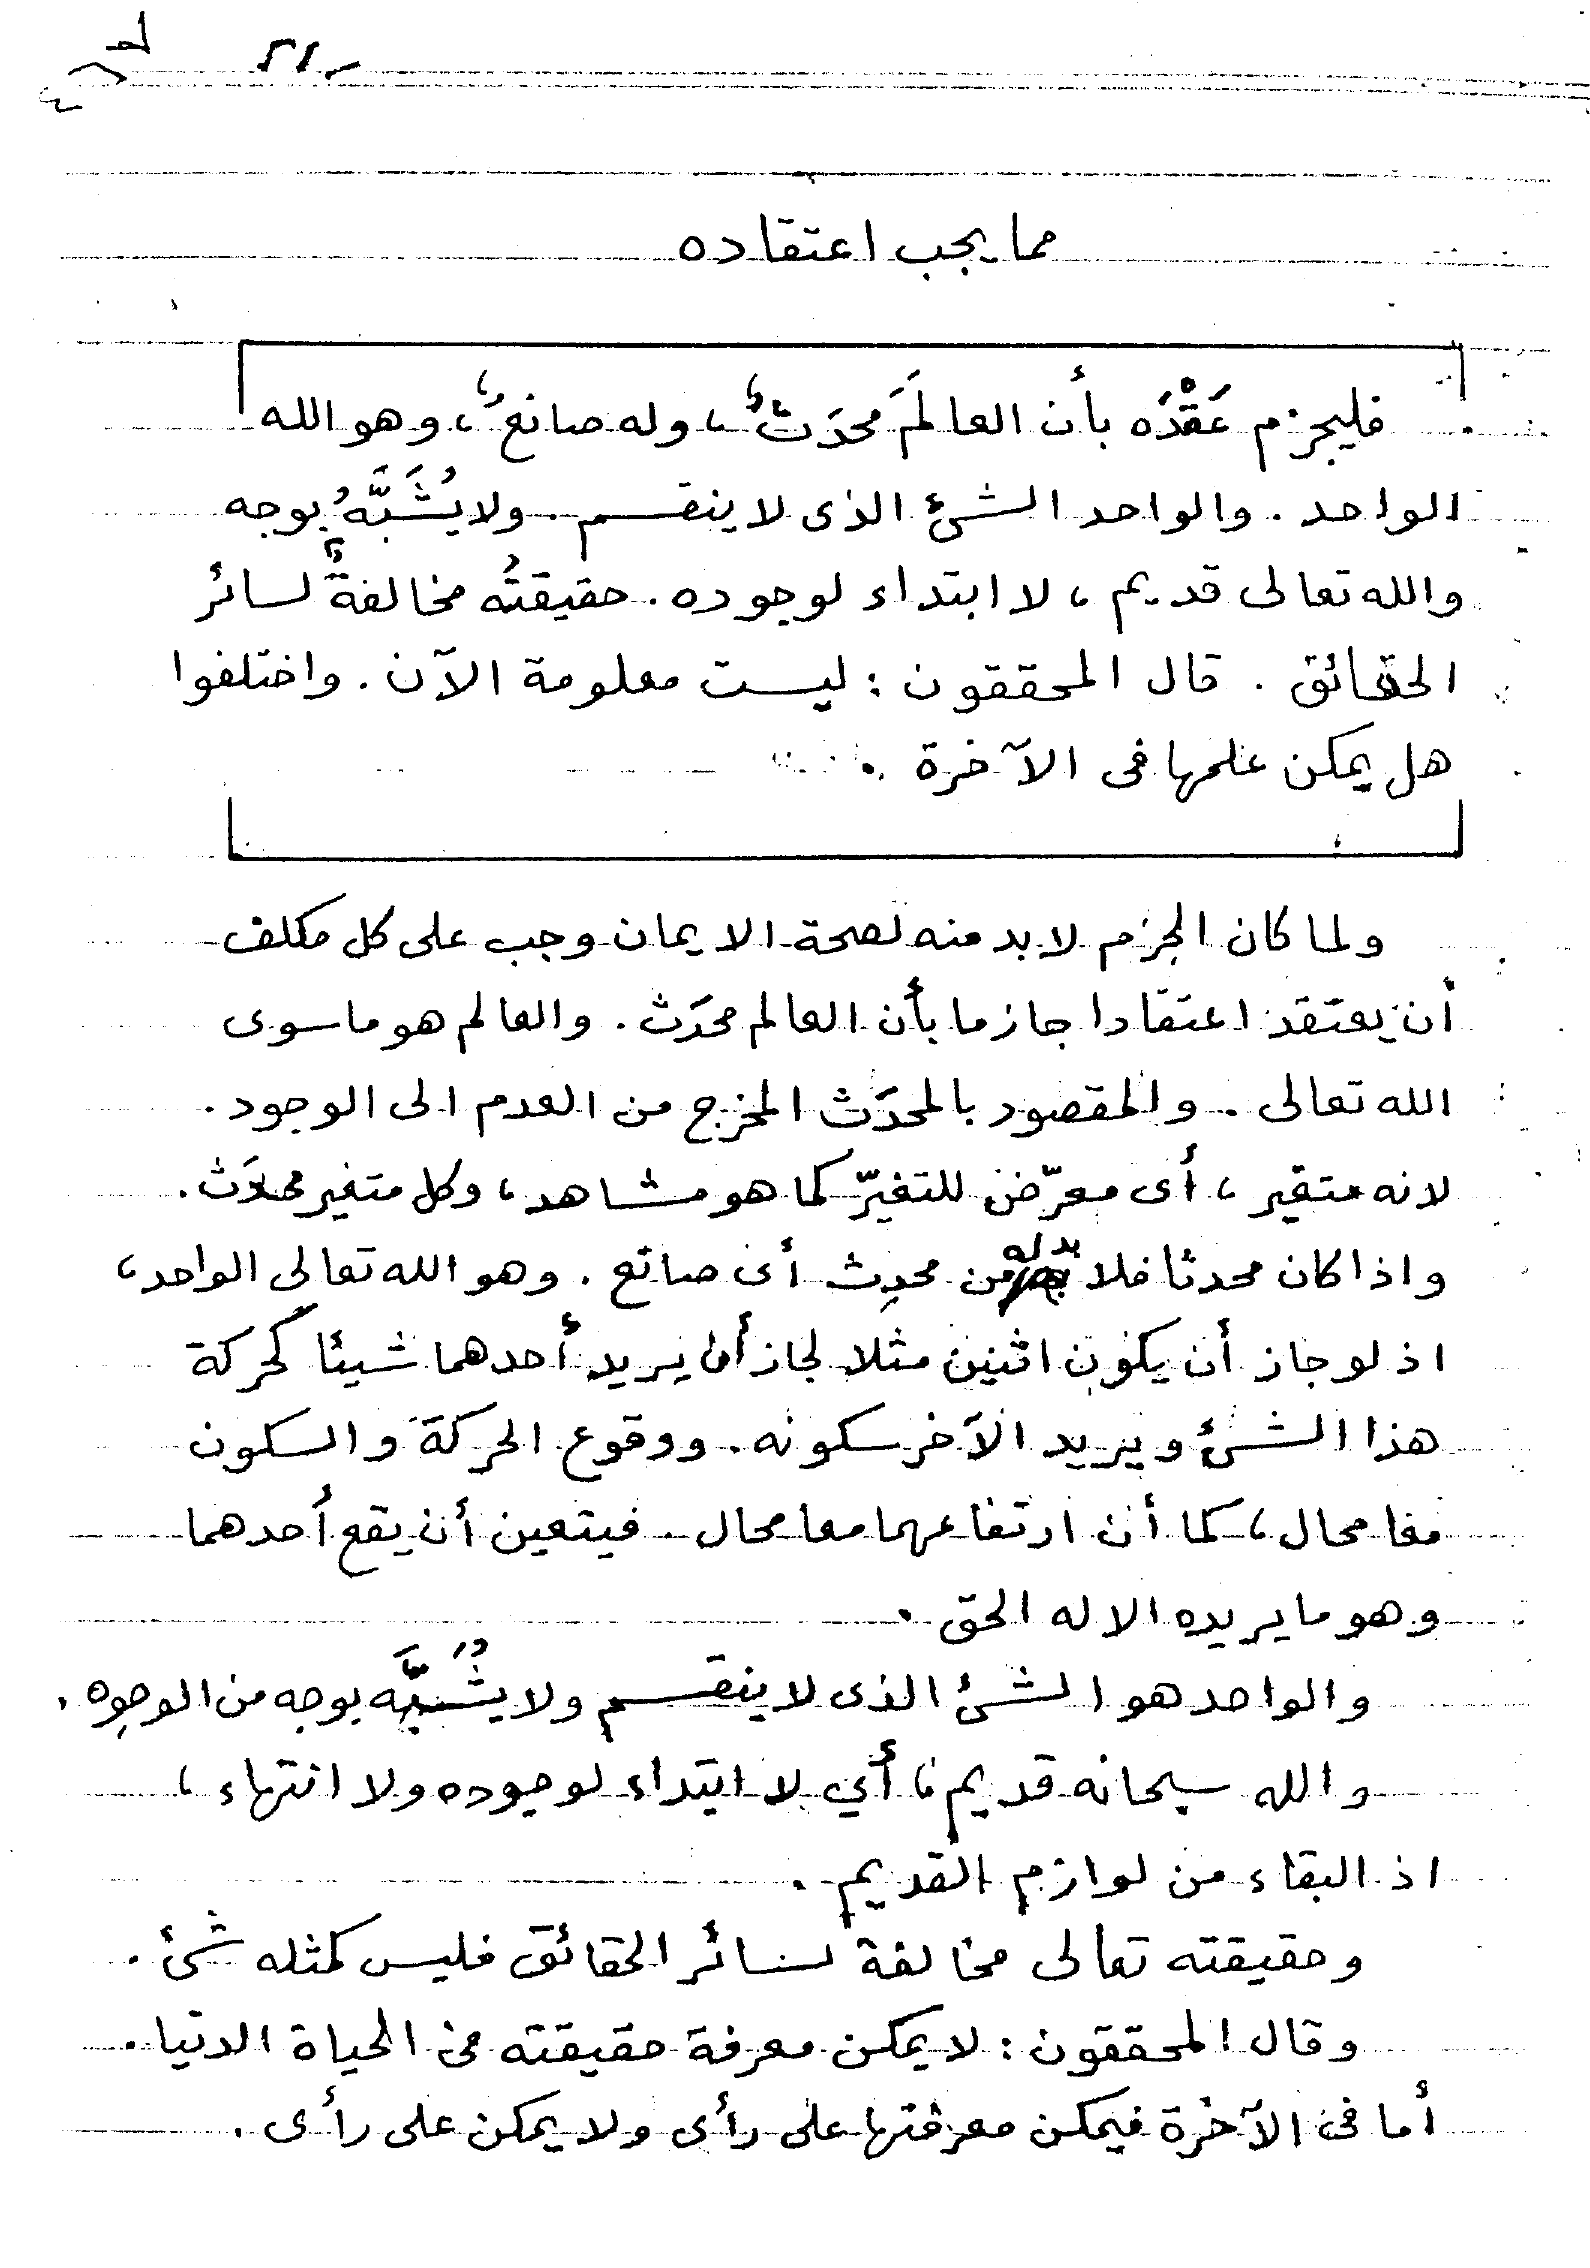 مما يجب اعتقاده
فليجزم عَقْدُه بأن العالَمَ محدَثٌ، وله صانعٌ، وهو الله
الواحد . والواحد الشئ الذى لا ينقسم . ولا يُشَبَّهُ بوجه
والله تعالى قديم ، لا ابتداء لوجوده . حقيقتُه مخالفةٌ لسائر
الحقائق . قال المحققون : ليست معلومة الآن . واختلفوا
هل يمكن علمها فى الآخرة .
ولما كان الجزم لا بد منه لصحة الايمان وجب على كل مكلف
أن يعتقد اعتقادا جازما بأن العالم محدَث . والعالم هو ما سوى
الله تعالى . والمقصور بالمحدَث المخرج من العدم الى الوجود .
لانه متغير ، أى معرّض للتغيّر كما هو مشاهد ، وكل متغير محدَث .
واذا كان محدثا فلا بد له من محدِث أى صانع . وهو الله تعالى الواحد ،
اذ لو جاز أن يكون اثنين مثلا لجاز أن يريد أحدهما شيئا كحركة
هذا الشئ ويريد الآخر سكونه . ووقوع الحركة والسكون
معا محال ، كما أن ارتفاعهما معا محال . فيتعين أن يقع أحدهما
وهو ما يريده الاله الحق .
والواحد هو الشئ الذى لا ينقسم ولا يُشَبَّه بوجه من الوجوه .
والله سبحانه قديم ، أي لا ابتداء لوجوده ولا انتهاء ،
اذ البقاء من لوازم القديم .
وحقيقته تعالى مخالفة لسائر الحقائق فليس كمثله شئ .
وقال المحققون : لا يمكن معرفة حقيقته فى الحياة الدنيا .
أما فى الآخرة فيمكن معرفتها على رأى ولا يمكن على رأى .